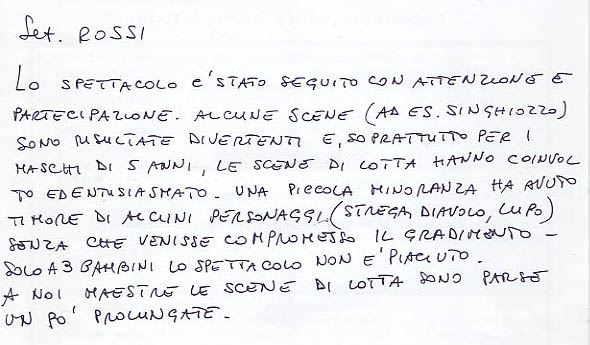 Sez. ROSSI
LO SPETTACOLO E' STATO SEGUITO CON ATTENZIONE E
PARTECIPAZIONE. ALCUNE SCENE (AD ES. SINGHIOZZO)
SONO RISULTATE DIVERTENTI E, SOPRATTUTTO PER I
MASCHI DI 5 ANNI, LE SCENE DI LOTTA HANNO COINVOL
TO ED ENTUSIASMATO. UNA PICCOLA MINORANZA HA AVUTO
TIMORE DI ALCUNI PERSONAGGI (STREGA, DIAVOLO, LUPO)
SENZA CHE VENISSE COMPROMESSO IL GRADIMENTO -
SOLO A 3 BAMBINI LO SPETTACOLO NON E' PIACIUTO.
A NOI MAESTRE LE SCENE DI LOTTA SONO PARSE
UN PO' PROLUNGATE.